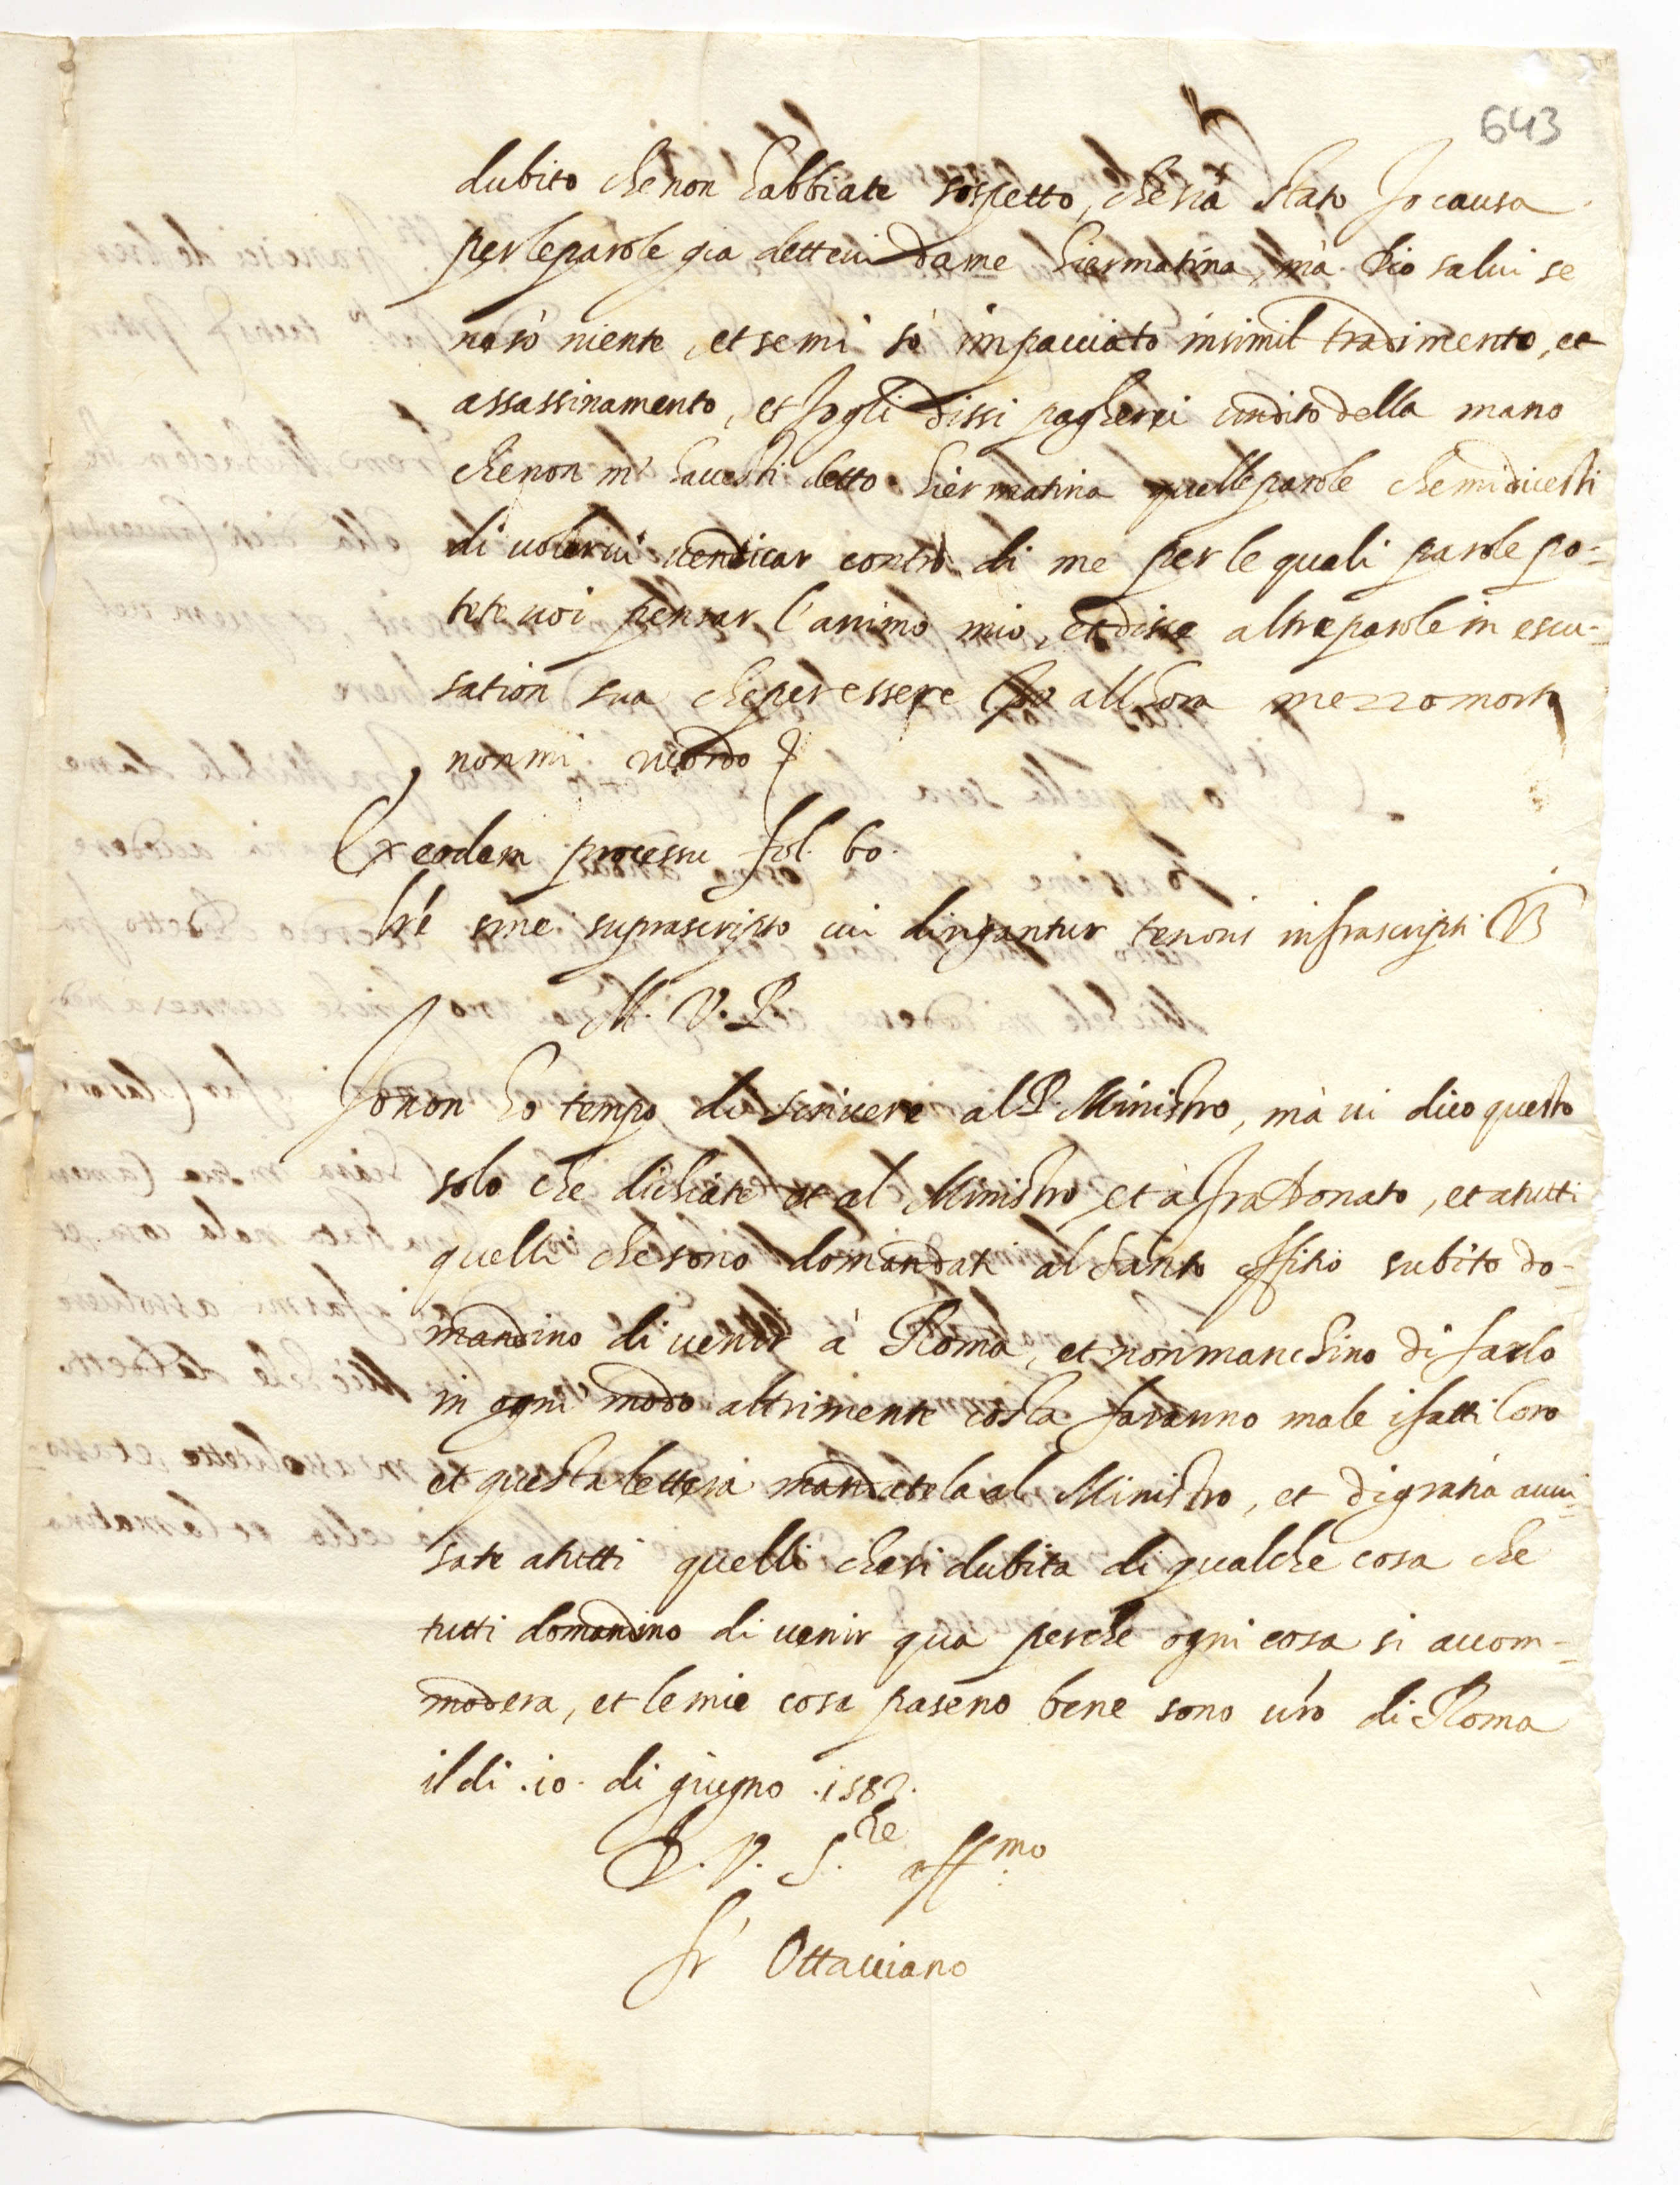 643
dubito che non habbiate sospetto, che sia stato Io causa
per le parole gia dettevi da me hiermatina, mà Dio salvi se
ne sò niente, et se mi sò impacciato in simil tradimento, et
assassinamento, et Io gli dissi pagherei un dito della mano
che non m'havesti detto hiermatina quelle parole che mi dicesti
di volervi vendicar contro di me per le quali parole po-
tete voi pensar l'animo mio, et disse altre parole in escu-
sation sua che per essere Io all'hora mezzo morto
non mi ricordo
Ex eodem processu fol. 60.
sine suprascripto cui dirigantur tenoris infrascripti
M. V. P.
Io non ho tempo di scrivere al P. Ministro, mà vi dico questo
solo che dichiate et al Ministro et à fra Donato, et a tutti
quelli che sono domandati al Santo offitio subito do-
mandino di venir à Roma, et non manchino di farlo
in ogni modo altrimente costa faranno male i fatti loro
et questa lettera mandatela al Ministro, et di gratia avvi-
sate a tutti quelli che si dubita di qualche cosa che
tutti domandino di venir qua perche ogni cosa si accom-
modera, et le mie cose paseno bene sono vro di Roma
il di .10. di giugno .1582.
D. V. S. re aff.mo
fr' Ottaviano